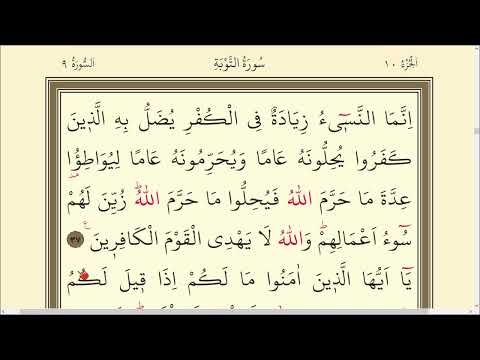 اَلْجُزْءُ ١٠ سُورَةُ التَّوْبَةِ اَلسُّورَةُ ٩
اِنَّمَا النَّسٖٓيءُ زِيَادَةٌ فِى الْكُفْرِ يُضَلُّ بِهِ الَّذٖينَ
كَفَرُوا يُحِلُّونَهُ عَامًا وَيُحَرِّمُونَهُ عَامًا لِيُوَاطِؤُ۫ا
عِدَّةَ مَا حَرَّمَ اللّٰهُ فَيُحِلُّوا مَا حَرَّمَ اللّٰهُۜ زُيِّنَ لَهُمْ
سُٓوءُ اَعْمَالِهِمْۜ وَاللّٰهُ لَا يَهْدِى الْقَوْمَ الْكَافِرٖينَ ۟ ٣٧
يَٓا اَيُّهَا الَّذٖينَ اٰمَنُوا مَا لَكُمْ اِذَا قٖيلَ لَكُمُ